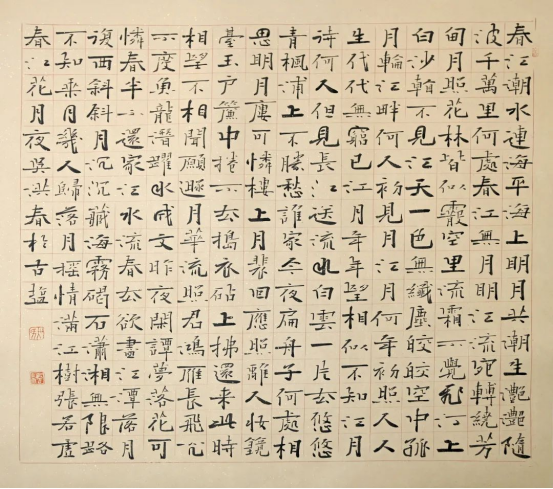 春江潮水連海平海上明月共潮生灩灩隨
波千萬里何處春江無月明江流宛轉繞芳
甸月照花林皆似霰空里流霜不覺飛汀上
白沙看不見江天一色無纖塵皎皎空中孤
月輪江畔何人初見月江月何年初照人人
生代代無窮已江月年年望相似不知江月
待何人但見長江送流水白雲一片去悠悠
青楓浦上不勝愁誰家今夜扁舟子何處相
思明月樓可憐樓上月裴回應照離人妝鏡
臺玉戶簾中捲不去搗衣砧上拂還來此時
相望不相聞願逐月華流照君鴻雁長飛光
不度魚龍潛躍水成文昨夜閑潭夢落花可
憐春半不還家江水流春去欲盡江潭落月
復西斜斜月沉沉藏海霧碣石瀟湘無限路
不知乘月幾人歸落月搖情滿江樹張若虛
春江花月夜吳洪春於古鹽